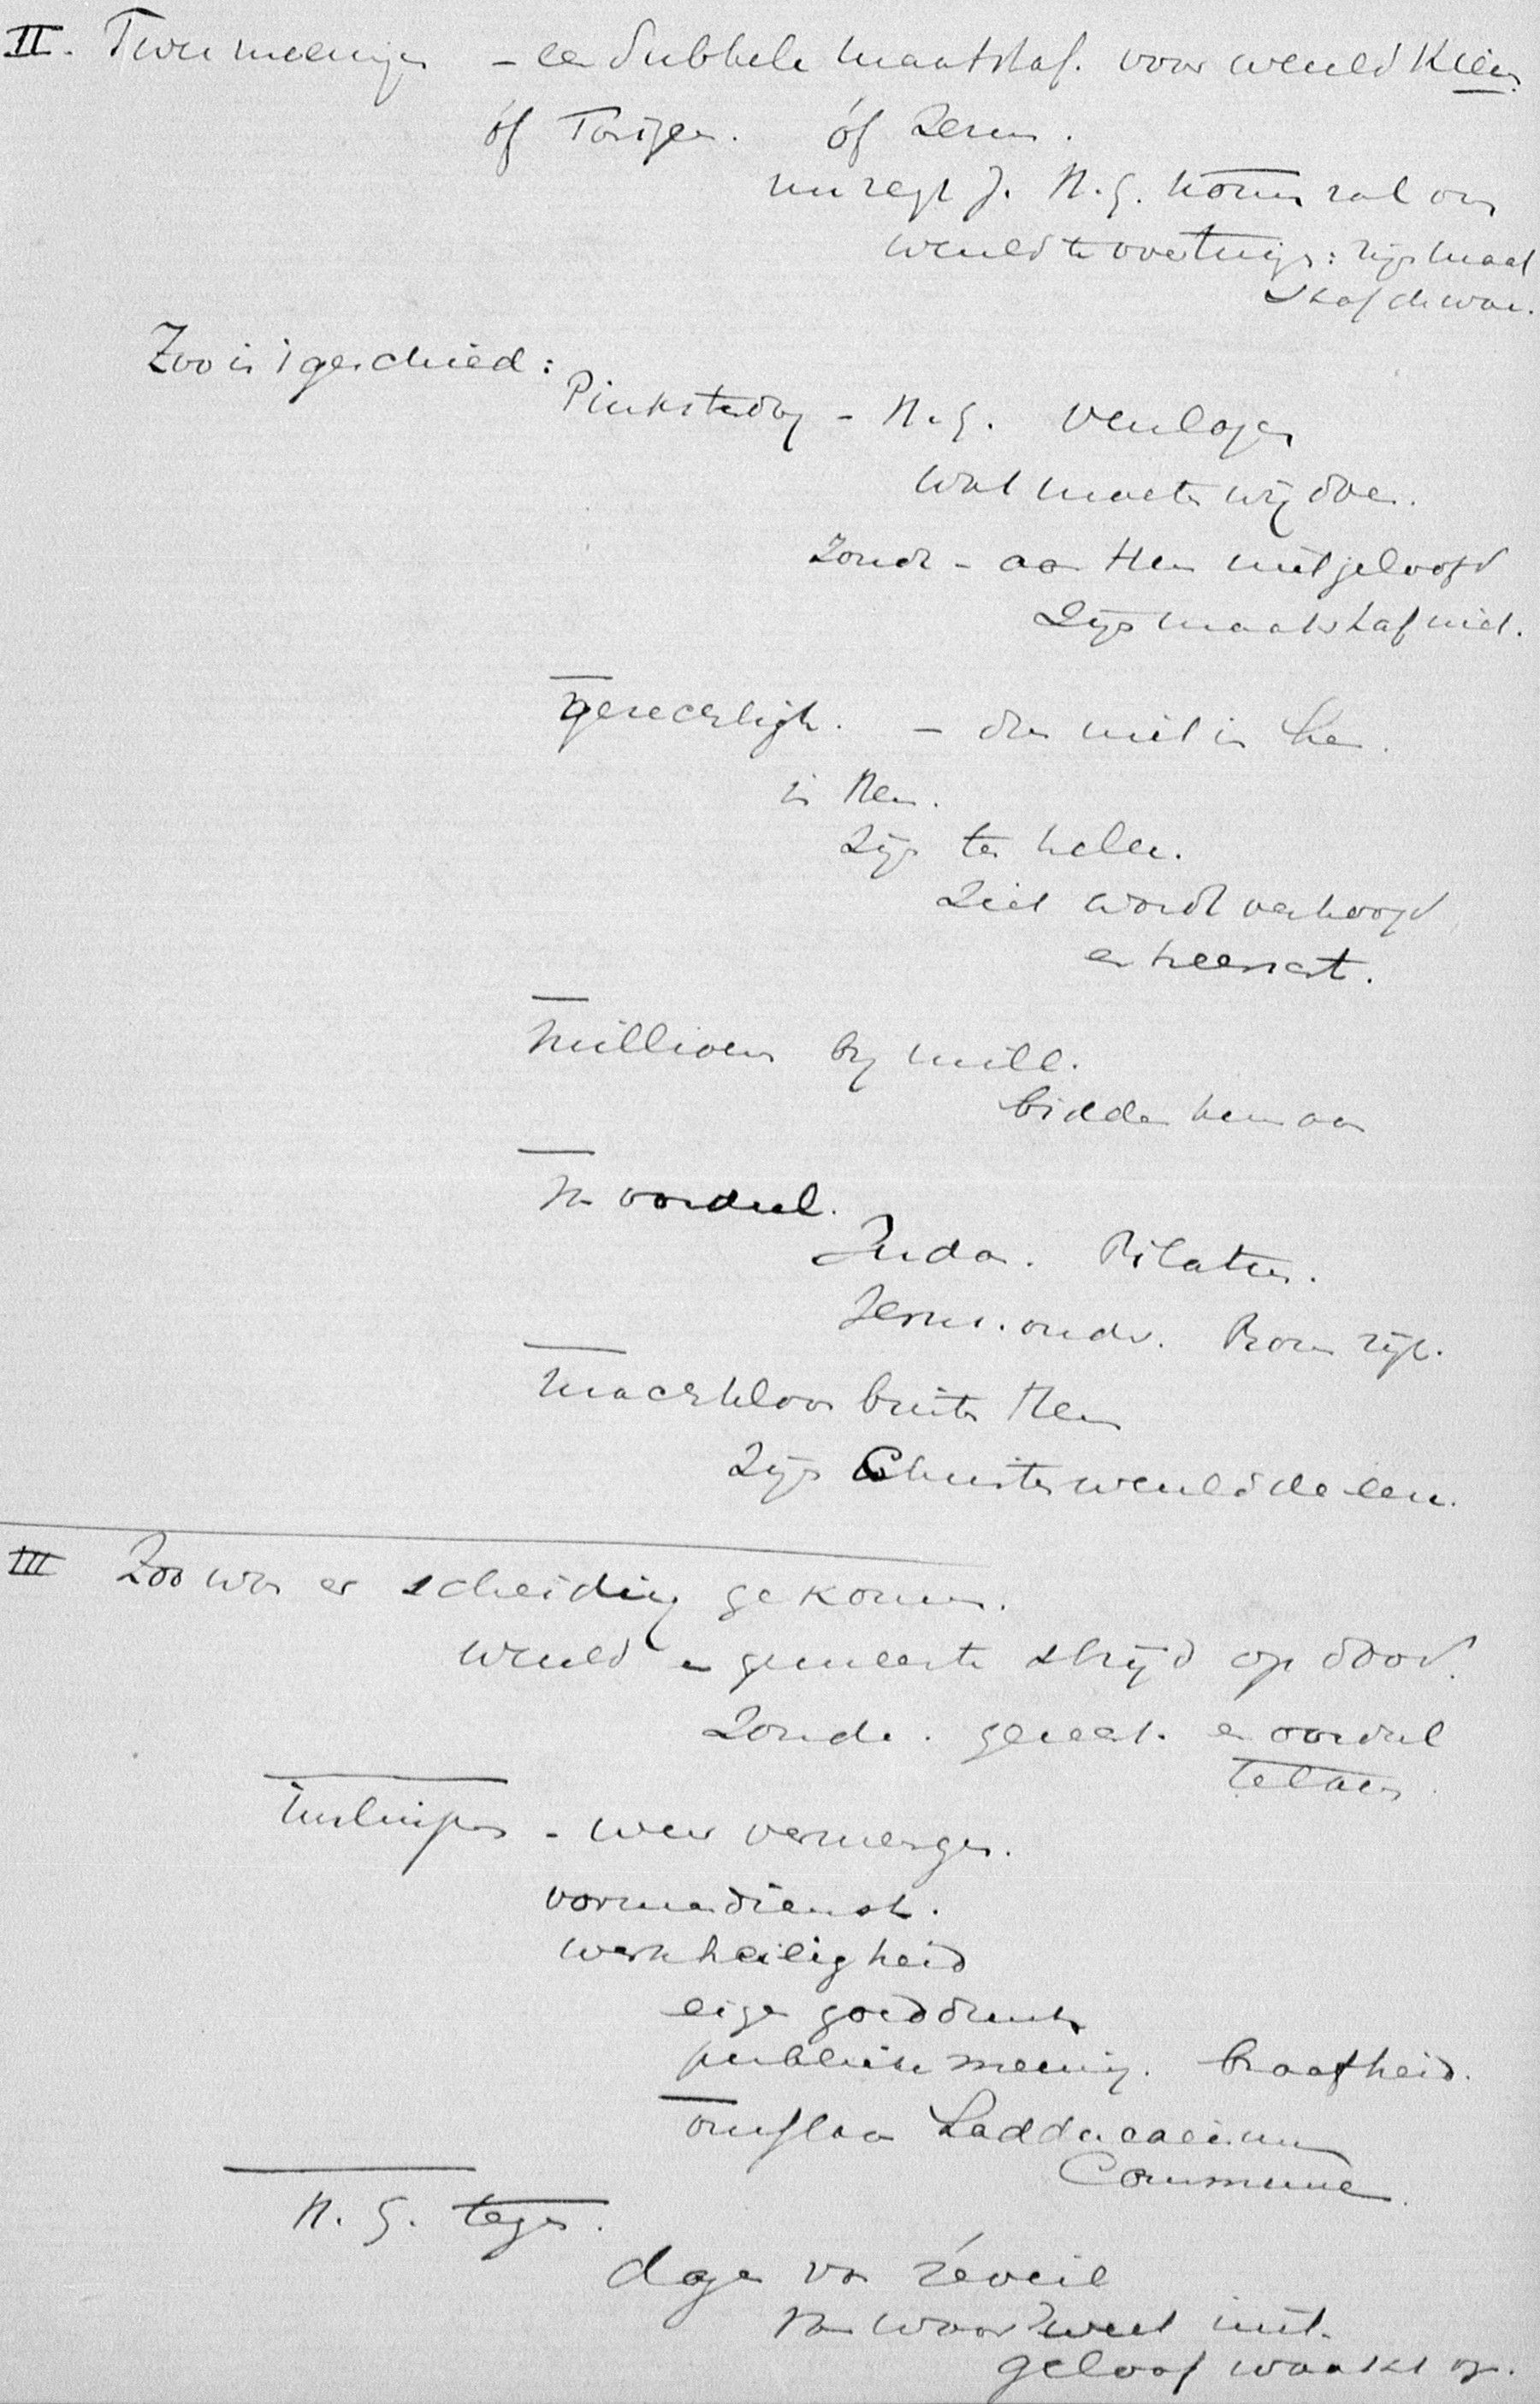 II. Twee meeningen - een dubbele maatstaf. voor wereld Kiezen.
óf Farizeen. óf Jezus.
nu zegt J. H.G. komen zal om
wereld te overtuigen: zijn maat
staf de ware.
Zoo is 't geschied:
Pinksterdag - H.G. verslagen
wat moeten wij doen.
Zonde - aan Hem niet geloofd
Zijn maatstaf niet.
gerechtigh. - die niet in hen.
in Hem.
Zijn ten hemel.
Ziet wordt verhoogd
en heerscht.
Millioen bij mill.
bidden hem aan
Ten oordeel.
Juda. Pilatus.
Jeruz. onderg. Rom rijk.
machteloos buiten Hem
Zijn Christen werelddeelen.
III Zoo was er scheiding gekomen.
wereld en gemeente strijd op dood.
Zonde. gerecht. en oordeel
te laten
Insluipen - weer vermengen.
vormendienst.
werkheiligheid
eigen gooddunken
publieke meening. braafheid.
Commune.
H.G. tegen.
dagen van réveil
van waar weet niet.
geloof waakt op.